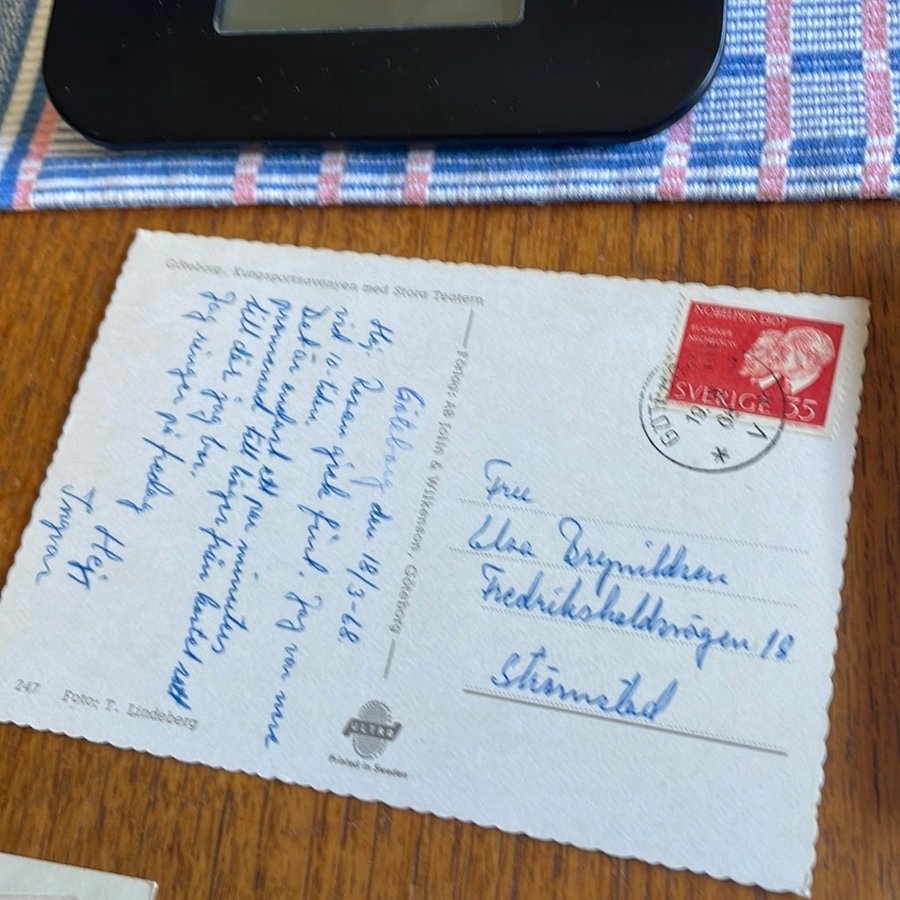 Göteborg, Kungsportsavenyen med Stora Teatern
Göteborg den 18/3-68.
Hej. Resan gick fint. Jag var inne
vid 10 tiden.
Det är endast ett par minuters
promenad till
till där jag bor.
Jag ringer på fredag
Hej
Ingvar
Förlag: AB Jolin & Wilkenson, Göteborg
247 Foto: T. Lindeberg
ULTRA
Printed in Sweden
NOBELPRIS 1907
BUCHNER
MICHELSON
SVERIGE 35
GÖTEBORG 1
19
Fru
Elsa Brynildsen
Fredrikshaldsvägen 18
Strömstad